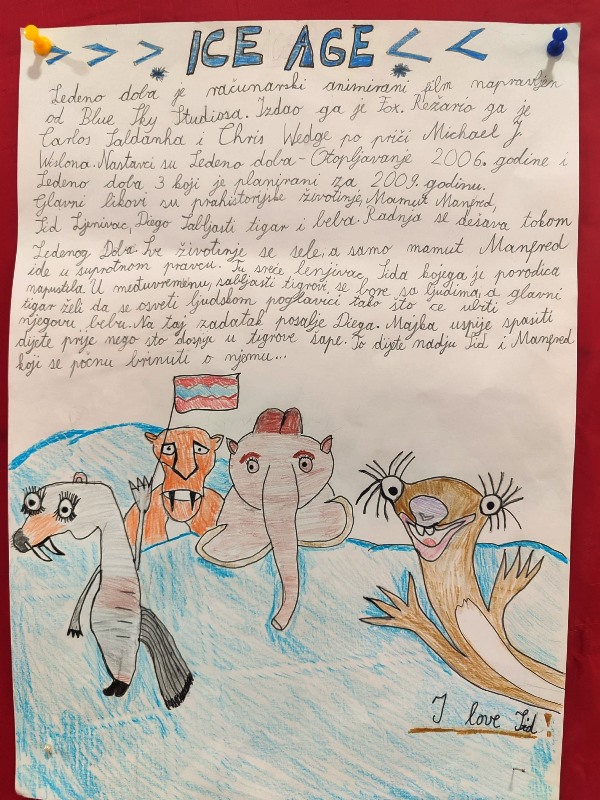 > > > ICE AGE < <
Ledeno doba je računarski animirani film napravljen
od Blue Sky Studiosa. Izdao ga je Fox. Režirao ga je
Carlos Saldanha i Chris Wedge po priči Michael J.
Wislona. Nastavci su Ledeno doba - Otopljavanje 2006. godine i
Ledeno doba 3 koji je planirani za 2009. godinu.
Glavni likovi su prahistorijske životinje, Mamut Manfred,
Sid Ljenivac, Diego Sabljasti tigar i beba. Radnja se dešava tokom
Ledenog Doba. Sve životinje se sele, a samo mamut Manfred
ide u suprotnom pravcu. Tu sreće lenjivac Sida kojega je porodica
napustela. U međuvremenu, sabljasti tigrovi se bore sa ljudima, a glavni
tigar želi da se osveti ljudskom poglavici tako što će ubiti
njegovu bebu. Na taj zadatak posalje Diega. Majka uspije spasiti
dijete prije nego što dospije u tigrove šape. To dijete nadju Sid i Manfred
koji se počnu brinuti o njemu...
I love Sid!